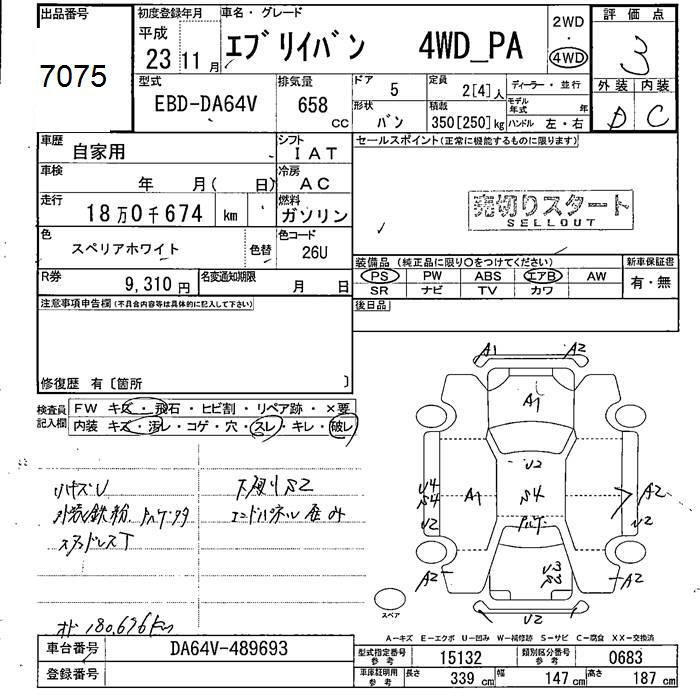 出品番号
7075
初度登録年月
平成
23 11 月
車名・グレード
エブリイバン 4WD_PA
2WD
・
4WD
評価点
3
外装 内装
D C
型式
EBD-DA64V
排気量
658 CC
ドア 5
定員 2[4]人
ディーラー・並行
形状 バン
積載 350[250]kg
モデル年式 年
ハンドル 左・右
車歴 自家用
シフト IAT
車検 年 月( 日)
冷房 AC
走行 18万0千674 km
燃料 ガソリン
色 スペリアホワイト 色替
色コード 26U
R券 9,310円
名変通知期限 月 日
セールスポイント(正常に機能するものに限ります)
売切りスタート
SELLOUT
装備品(純正品に限り○をつけてください)
新車保証書
PS PW ABS エアB AW
有・無
SR ナビ TV カワ
後日品
注意事項申告欄(不具合内容等は具体的に記入して下さい)
修復歴 有〔箇所 〕
検査員記入欄
FW キズ・飛石・ヒビ割・リペア跡・×要
内装 キズ・汚レ・コゲ・穴・スレ・キレ・破レ
下廻りS2
外装鉄粉
エンドパネル歪み
スタッドレスT
180,676km
A1 A2
A1
U2
U4
S4
U2
A1
S4
A2
U2
U3
S3
A2
A2
U2
スペア
A-キズ E-エクボ U-凹み W-補修跡 S-サビ C-腐食 XX-交換済
車台番号 DA64V-489693
登録番号
型式指定番号 参考 15132
類別区分番号 参考 0683
車庫証明用 参考 長さ 339 cm 幅 147 cm 高さ 187 cm